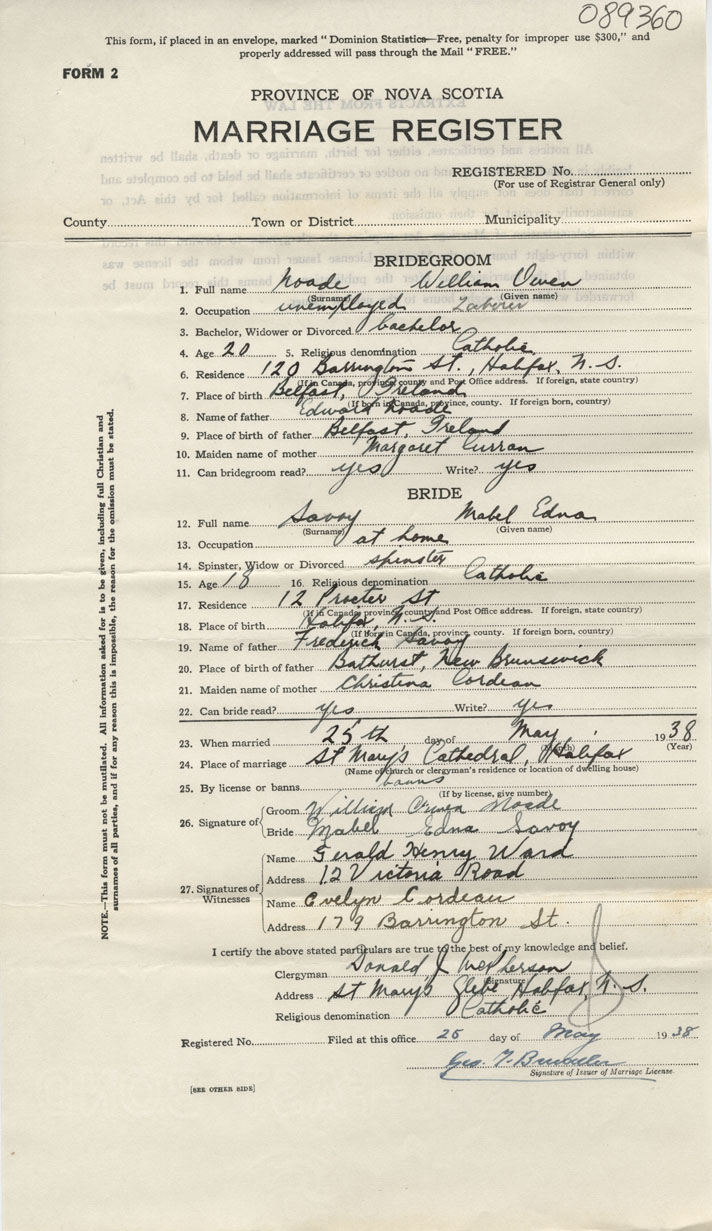 089360
This form, if placed in an envelope, marked "Dominion Statistics—Free, penalty for improper use $300," and
properly addressed will pass through the Mail "FREE."
FORM 2
PROVINCE OF NOVA SCOTIA
MARRIAGE REGISTER
REGISTERED No.
(For use of Registrar General only)
County Town or District Municipality
BRIDEGROOM
1. Full name Noade William Owen
(Surname) (Given name)
2. Occupation unemployed Laborer
3. Bachelor, Widower or Divorced bachelor
4. Age 20 5. Religious denomination Catholic
6. Residence 120 Barrington St., Halifax, N.S.
(If in Canada, province, county and Post Office address. If foreign, state country)
7. Place of birth Belfast, Ireland
(If born in Canada, province, county. If foreign born, country)
8. Name of father Edward Noade
9. Place of birth of father Belfast, Ireland
10. Maiden name of mother Margaret Curran
11. Can bridegroom read? yes Write? yes
BRIDE
12. Full name Savoy Mabel Edna
(Surname) (Given name)
13. Occupation at home
14. Spinster, Widow or Divorced spinster
15. Age 18 16. Religious denomination Catholic
17. Residence 12 Procter St
(If in Canada, province, county and Post Office address. If foreign, state country)
18. Place of birth Halifax, N.S.
(If born in Canada, province, county. If foreign born, country)
19. Name of father Frederick Savoy
20. Place of birth of father Bathurst, New Brunswick
21. Maiden name of mother Christina Cordeau
22. Can bride read? yes Write? yes
23. When married 25th day of May 1938
(Month) (Year)
24. Place of marriage St Mary's Cathedral, Halifax
(Name of church or clergyman's residence or location of dwelling house)
25. By license or banns banns
(If by license, give number)
26. Signature of Groom William Owen Noade
Bride Mabel Edna Savoy
27. Signatures of Witnesses Name Gerald Henry Ward
Address 12 Victoria Road
Name Evelyn Cordeau
Address 179 Barrington St.
I certify the above stated particulars are true to the best of my knowledge and belief.
Clergyman Donald J McPherson
Signature
Address St Mary's Glebe Halifax, N.S.
Religious denomination Catholic
Registered No. Filed at this office 25 day of May 1938
Geo.
Signature of Issuer of Marriage License.
[SEE OTHER SIDE]
NOTE.—This form must not be mutilated. All information asked for is to be given, including full Christian and
surnames of all parties, and if for any reason this is impossible, the reason for the omission must be stated.